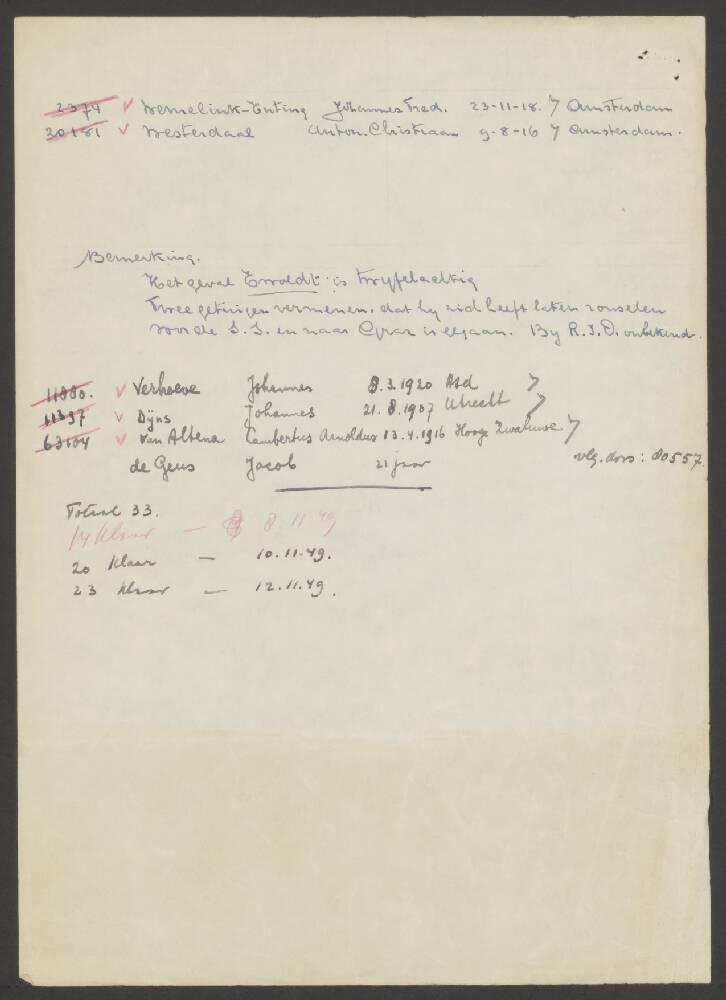 2374 v Wemelink-Enting Johannes Fred. 23-11-18. 7 Amsterdam
20181 v Westerdaal Anton. Christiaan 9-8-16 7 Amsterdam.
Bemerking.
Het geval Ewoldt is twyfelachtig
Twee getuigen vermenen, dat hy zich heeft laten ronselen
voor de S.S. en naar Graz is gegaan. By R.I.O. onbekend.
11880. v Verhoeve Johannes 8.3.1920 Asd 7
11397 v Dijns Johannes 21.8.1907 Utrecht 7
63104 v van Altena Lambertus Arnoldus 13.4.1916 Hooge Zwaluwe 7
de Geus Jacob 21 jaar vlg. dors: 80557
Totaal 33.
14 klaar — 8.11.49
20 klaar — 10.11.49.
23 klaar — 12.11.49.